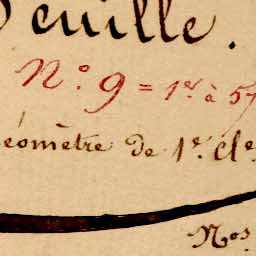 euille.
N.° 9 = 1.er à 57
éomètre de 1.re Cl.e
N.os